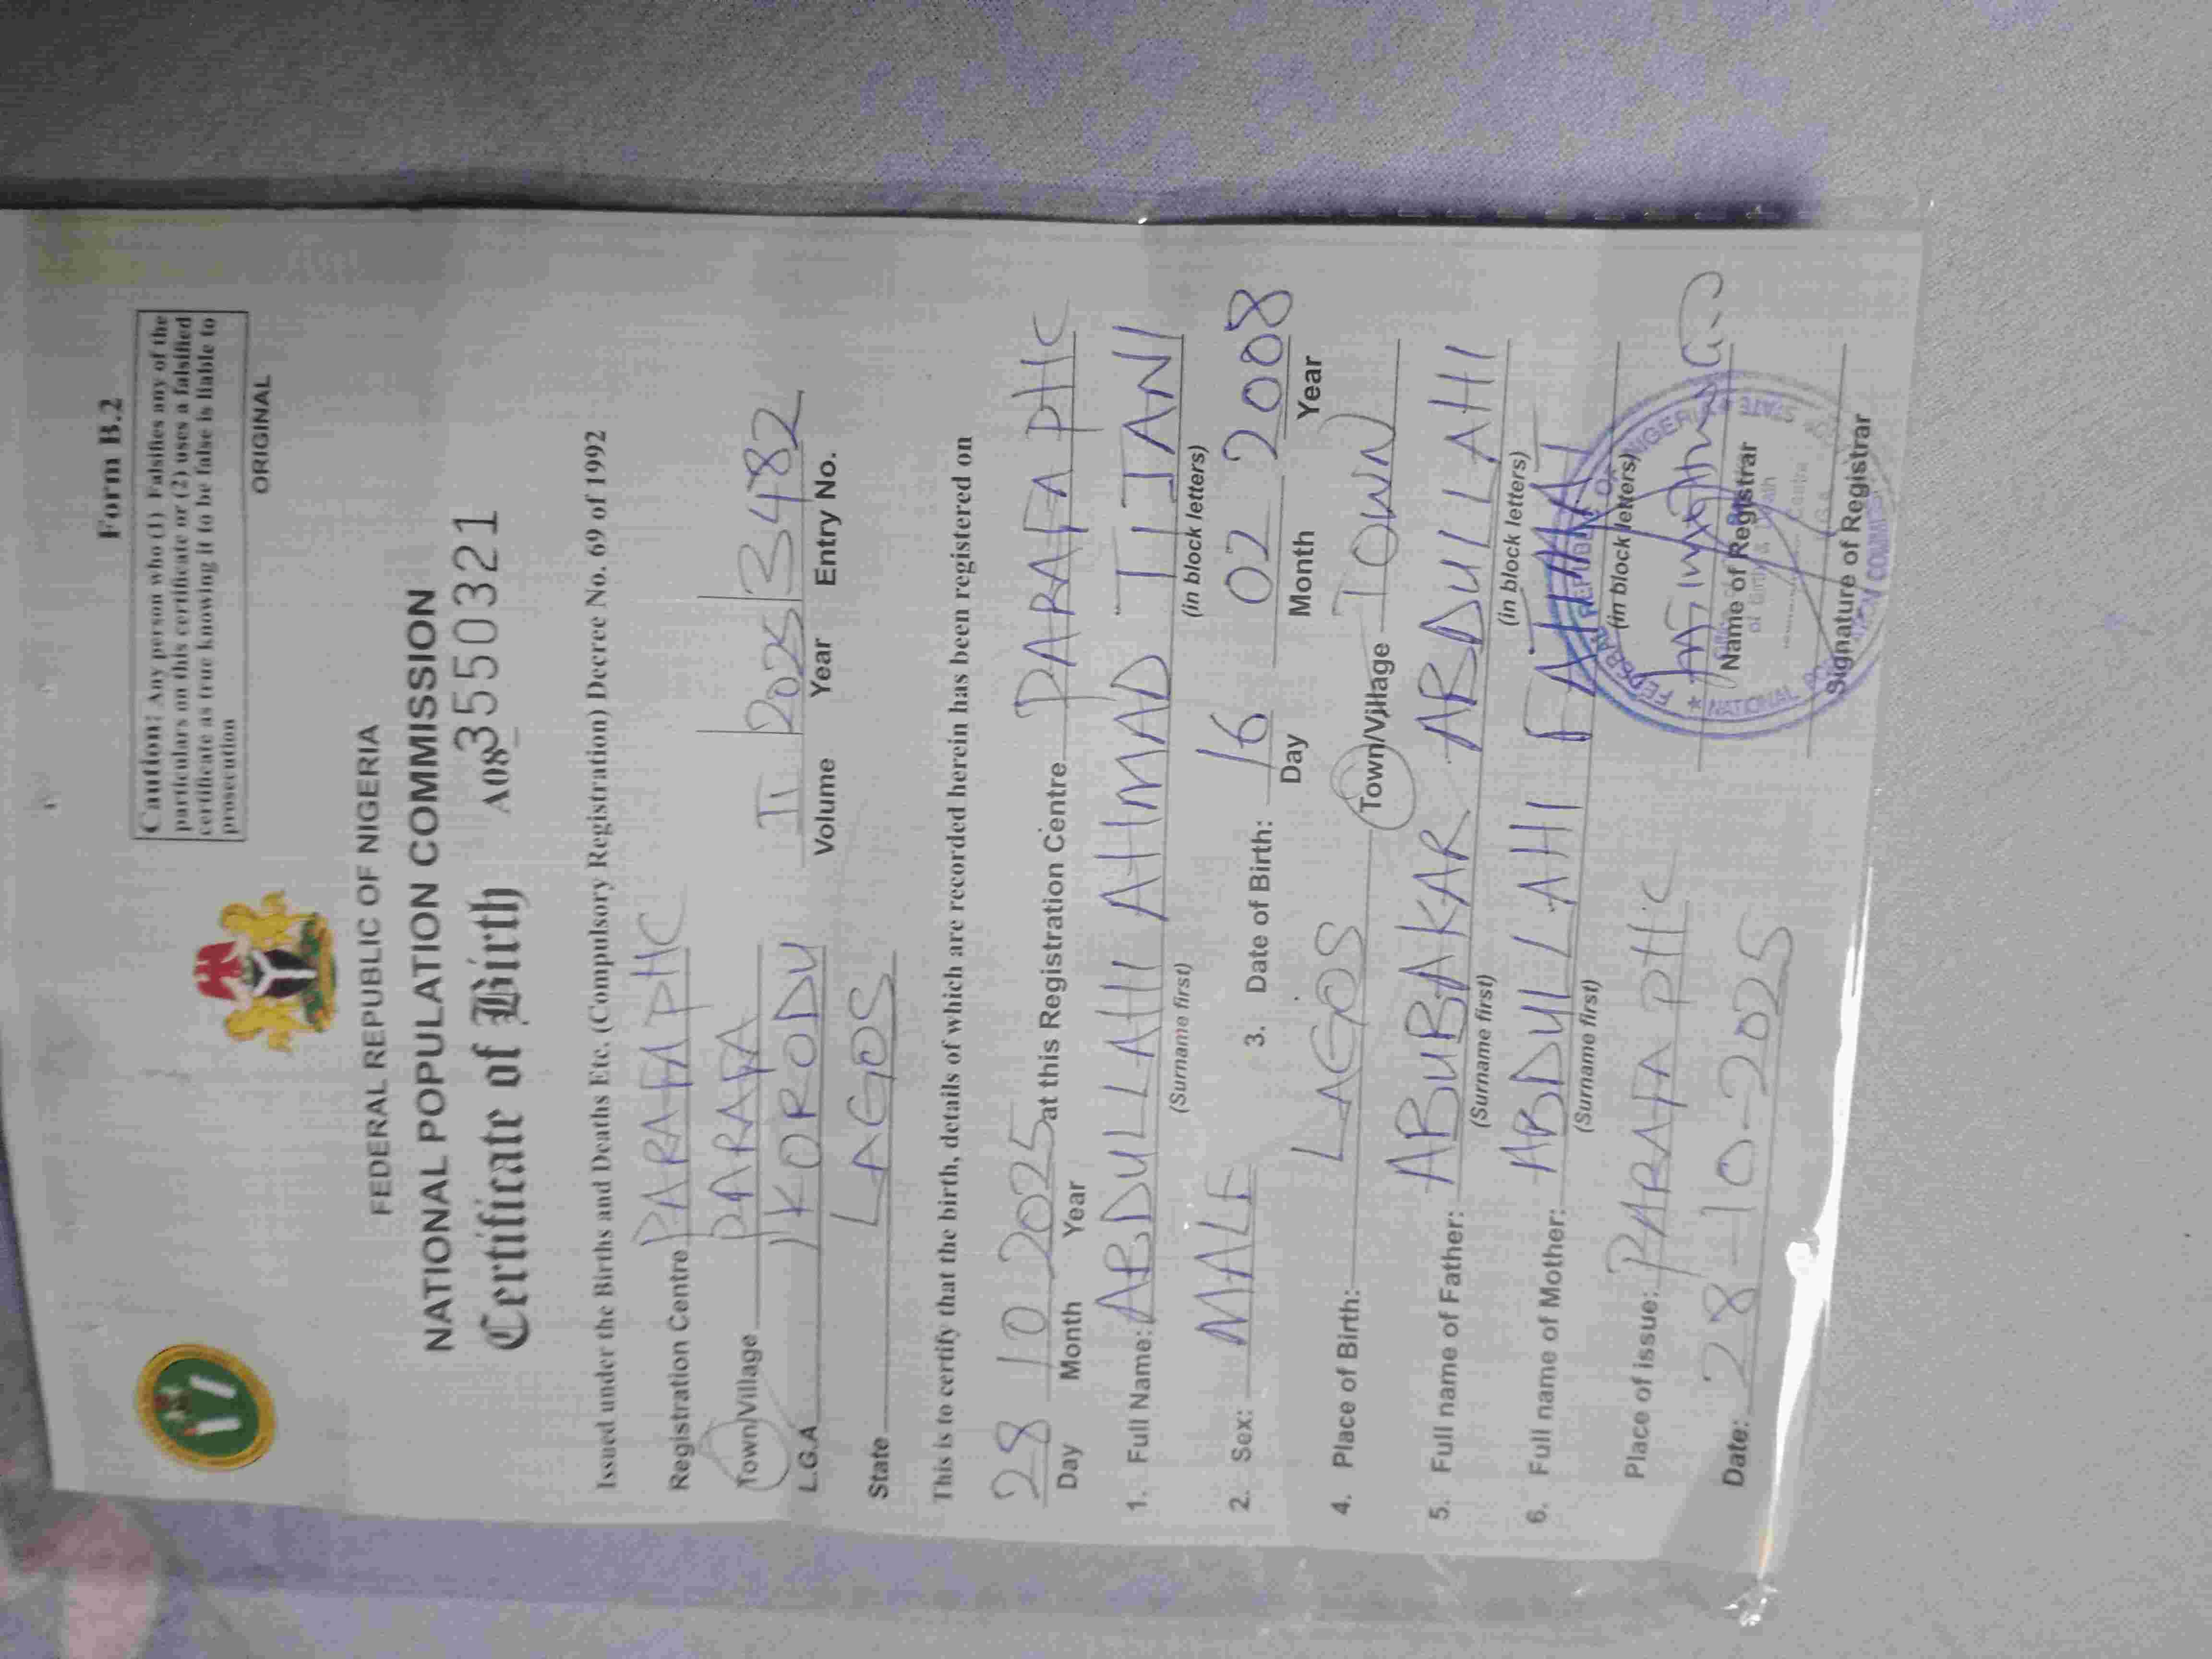 Form B.2
Caution: Any person who (1) Falsifies any of the
particulars on this certificate or (2) uses a falsified
certificate as true knowing it to be false is liable to
prosecution
ORIGINAL
FEDERAL REPUBLIC OF NIGERIA
NATIONAL POPULATION COMMISSION
Certificate of Birth A083550321
Issued under the Births and Deaths Etc. (Compulsory Registration) Decree No. 69 of 1992
Registration Centre PARAFA PHC
Town/Village PARAFA
L.G.A IKORODU
State LAGOS
II 2025 3482
Volume Year Entry No.
This is to certify that the birth, details of which are recorded herein has been registered on
28 10 2025 at this Registration Centre PARAFA PHC
Day Month Year
1. Full Name: ABDULLAHI AHMAD TIJANI
(Surname first) (in block letters)
2. Sex: MALE 3. Date of Birth: 16 02 2008
Day Month Year
4. Place of Birth: LAGOS Town/Village TOWN
5. Full name of Father: ABUBAKAR ABDULLAHI
(Surname first) (in block letters)
6. Full name of Mother: ABDULLAHI FATIMA
(Surname first) (in block letters)
Place of issue: PARAFA PHC
Name of Registrar
Date: 28-10-2025
Signature of Registrar
FEDERAL REPUBLIC OF NIGERIA
NATIONAL POPULATION COMMISSION